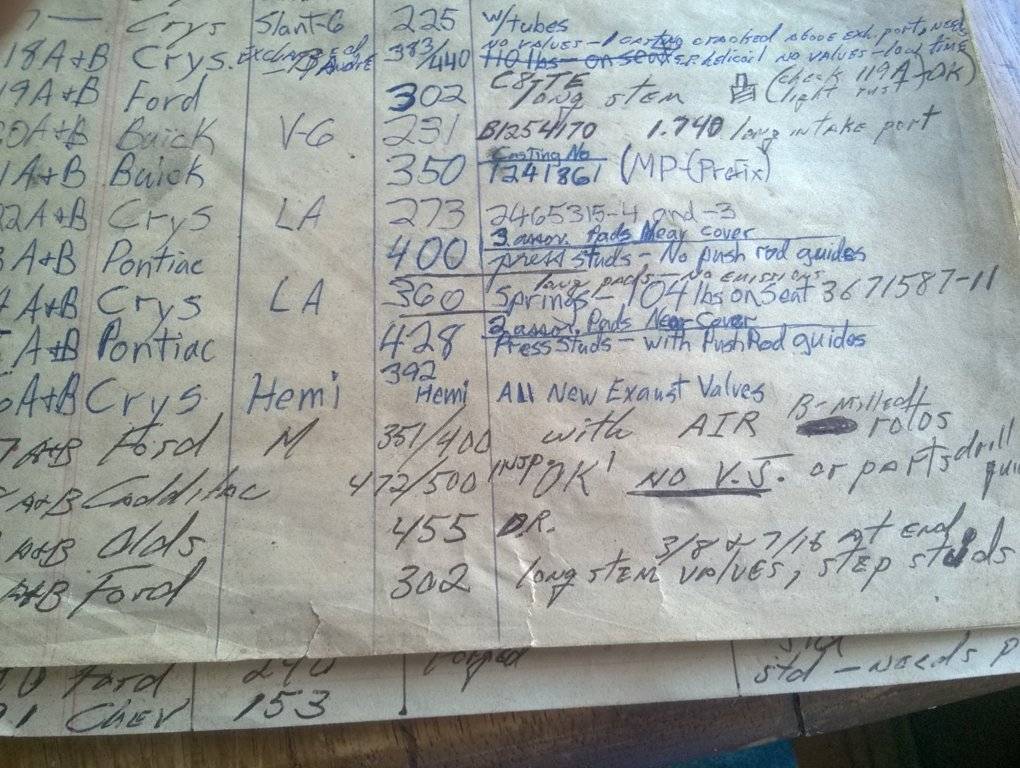 7 — Crys Slant-6 225 w/tubes
18A+B Crys. 383/440 NO VALVES - 1 CASTING CRACKED ABOVE EXH. PORT, NEED
110 lbs - on seat NO VALVES - long time
19A+B Ford 302 C8TTE long stem (check 119A+ OK)
light rust
20A+B Buick V-6 231 B1254170 1.740 long intake port
1A+B Buick 350 Casting No
1241861 (MP-(Prefix)
22A+B Crys LA 273 2465315-4 and -3
3 assor. Pads Near cover
3A+B Pontiac 400 press studs - No push rod guides
long pads - NO EMISSIONS
4A+B Crys LA 360 Springs - 104 lbs on Seat 3671587-11
2 assor. Pads Near Cover
A+B Pontiac 428 Press Studs - with Push Rod guides
6A+B Crys Hemi 392 Hemi All New Exaust Valves
7A+B Ford M 351/400 with AIR B-Milled rotos
A+B Cadillac 472/500 INSP OK! NO V.J. or parts drill
A+B Olds 455 DR.
3/8 & 7/16 at end
A+B Ford 302 long stem valves, step studs
0 Ford 240 std - NEEDS P
91 CHEV 153